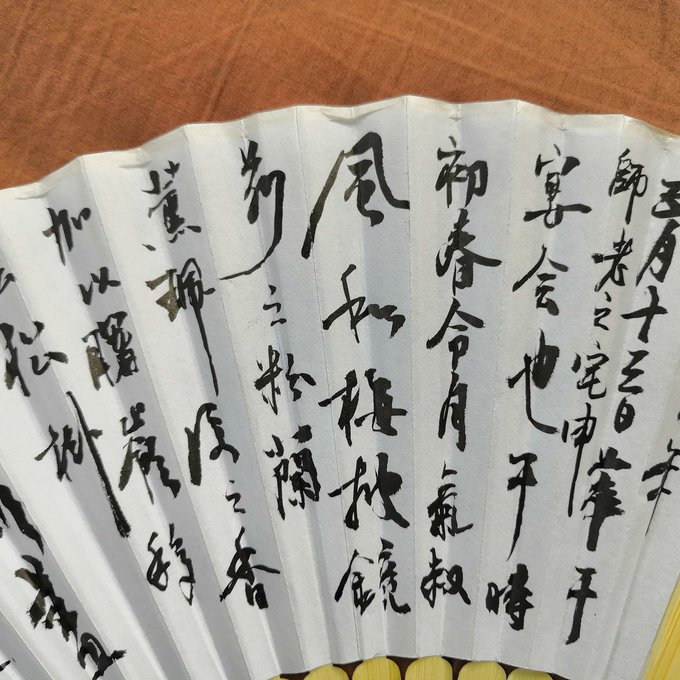 年
正月十三日萃于
師老之宅申
宴会也于時
初春令月氣叔
風和梅披鏡
前之粉蘭
薫珮後之香
加以曙嶺移
松掛